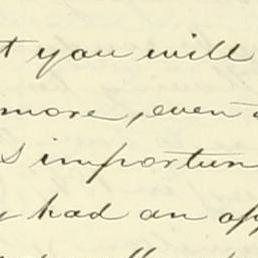 t you will
more, even
s importun
y had an op